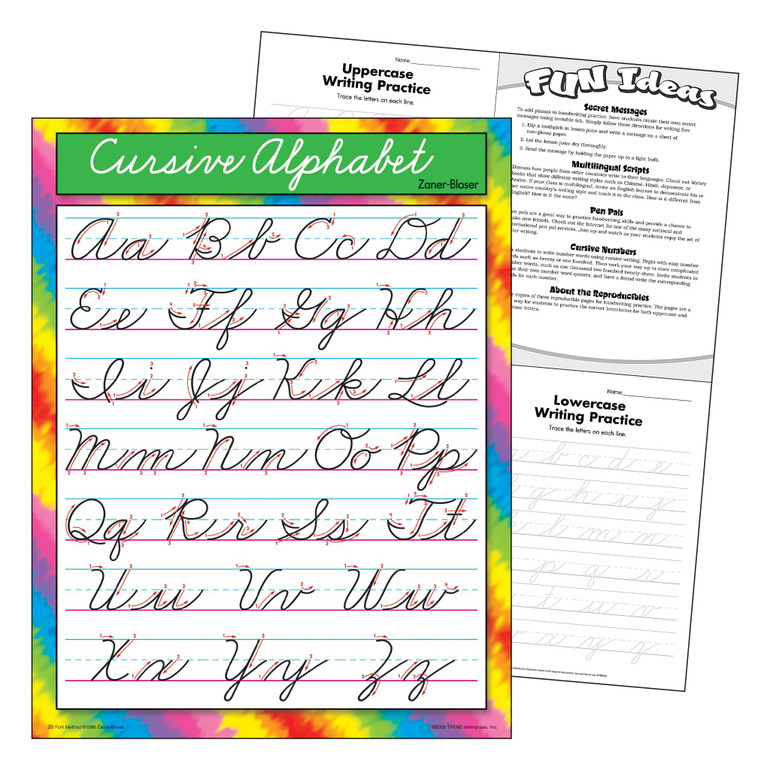 Cursive Alphabet
Zaner-Bloser
Aa Bb Cc Dd
Ee Ff Gg Hh
Ii Jj Kk Ll
Mm Nn Oo Pp
Qq Rr Ss Tt
Uu Vv Ww
Xx Yy Zz
ZB Font Method ©1996 Zaner-Bloser
TREND enterprises, Inc.
Name:
Uppercase
Writing Practice
Trace the letters on each line.
FUN Ideas
Secret Messages
To add pizzazz to handwriting practice, have students create their own secret
messages using invisible ink. Simply follow these directions for writing fun:
1. Dip a toothpick in lemon juice and write a message on a sheet of
non-glossy paper.
2. Let the lemon juice dry thoroughly.
3. Read the message by holding the paper up to a light bulb.
Multilingual Scripts
Discuss how people from other countries write in their languages. Check out library
books that show different writing styles such as Chinese, Hindi, Japanese, or
If your class is multilingual, invite an English learner to demonstrate it to the
native country's writing style and teach it to the class. How is it different from
English? How is it the same?
Pen Pals
pals are a great way to practice handwriting skills and provide a chance to
new friends. Check out the Internet for one of the many national and
international pen pal services. Join up and watch as your students enjoy the art of
writing.
Cursive Numbers
students to write number words using cursive writing. Begin with easy number
such as twenty or one hundred. Then work your way up to more complicated
number words, such as one thousand two hundred twenty-three. Invite students to
their own number word quizzes, and have a friend write the corresponding
for each number.
About the Reproducibles
copies of these reproducible pages for handwriting practice. The pages are a
way for students to practice the correct letterforms for both uppercase and
letters.
Name:
Lowercase
Writing Practice
Trace the letters on each line.
b c d e
g h i j
l m n
p q r
t u v
x y z